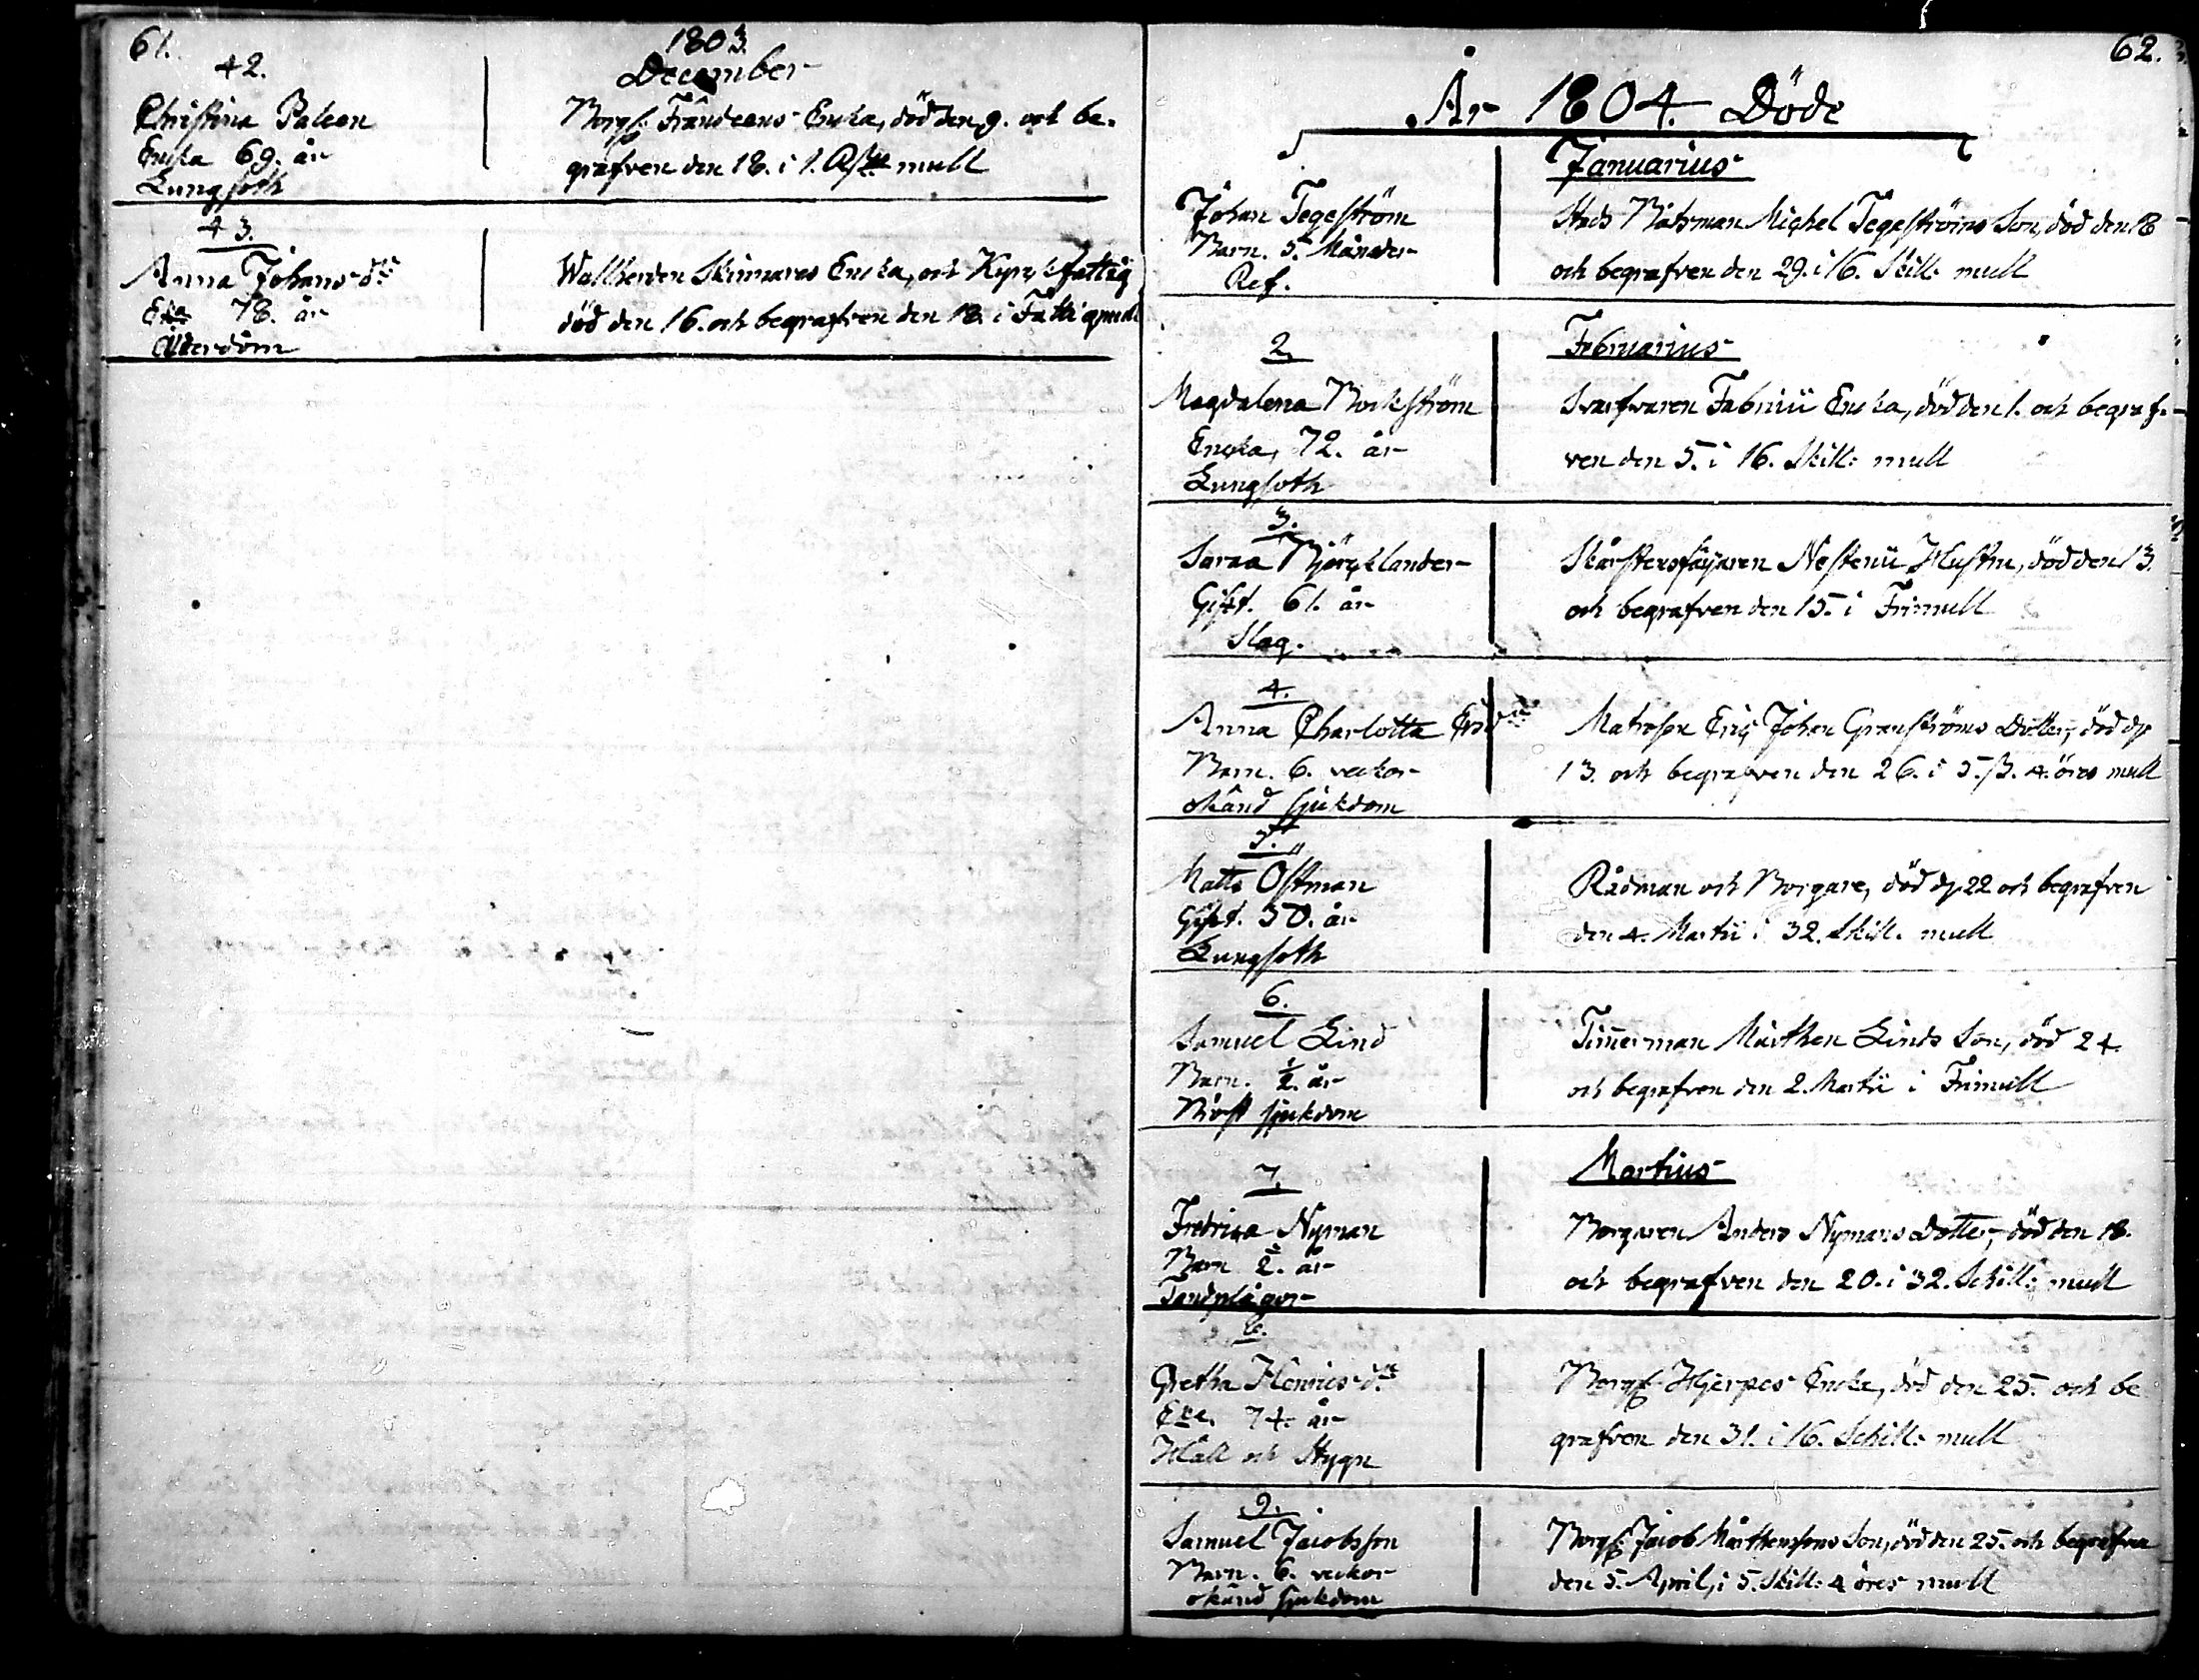 61.
1803.
December
42.
Christina Paleen
Enka 69. år
Lungsoth
Borgs: Frändeens Enka, död den 9. och be-
grafven den 18. i 1. mull
43.
Anna Johans dr
Eka 78. år
Ålderdom
Wallherden Skinnares Enka, och Kyrck fattig
död den 16. och begrafven den 18. i Fattigmull
62.
År 1804. Döde
Januarius
Johan Tegeström
Barn. 5. Månader
Ref.
Stads Båtsman Michel Tegeströms Son, död den 18
och begrafven den 29. i 16. Skill: mull
2.
Februarius
Magdalena Bockström
Encka, 72. år
Lungsoth
Svarfvaren Fabricii Encka, död den 1. och begraf-
ven den 5. i 16. Skill: mull
3.
Saraa Björcklander
Gift. 61. år
Slag.
Skårstensfäijaren Nestenii Hustru, död den 13.
och begrafven den 15. i Frimull
4.
Anna Charlotta
Barn. 6. veckor
okänd sjukdom
Matrosen Eric Johan Granströms Dotter, död d.
13. och begrafven den 26. i 5. ß. 4. öres mull
5.
Matts Östman
Gift. 50. år
Lungsoth
Rådman och Borgare, död d. 22 och begrafven
den 4. Martii i 32. Skill. mull
6.
Samuel Lind
Barn. ½. år
Bröst sjukdom
Timerman Mårthen Linds Son, död 24.
och begrafven den 2. Martii i Frimull
7.
Martius
Fredrica Nyman
Barn ½. år
Tandplågor
Borgaren Anders Nymans Dotter, död den 18.
och begrafven den 20. i 32. Schill: mull
8.
Gretha Henrics dr
Eke. 74. år
Håll och Stygn
Borgs: Hjerpes Encke, död den 25. och be
grafven den 31. i 16. Schill: mull
9.
Samuel Jacobsson
Barn. 6. veckor
okänd sjukdom
Borgs: Jacob Mårthenssons Son, död den 25. och begrafven
den 5. April, i 5. Skill: 4 öres mull